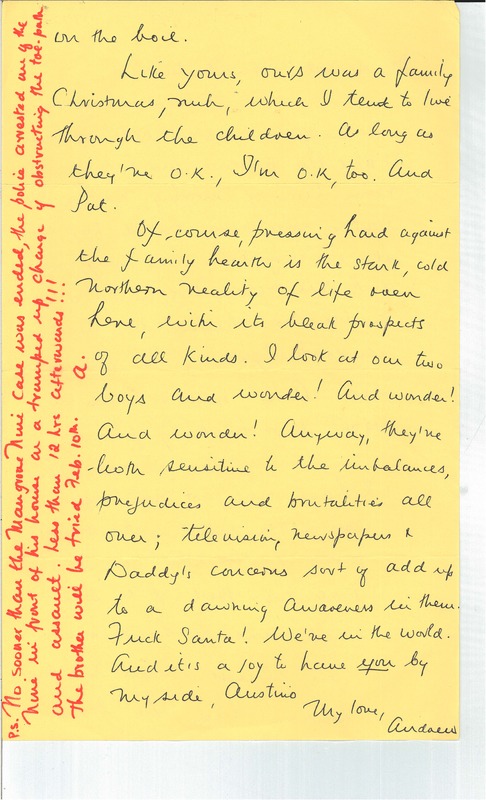 on the boil.
Like yours, ours was a family
Christmas, nuh, which I tend to live
through the children. As long as
they're O.K., I'm O.K, too. And
Pat.
Of course, pressing hard against
the family hearth is the stark, cold
Northern reality of life over
here, with its bleak prospects
of all kinds. I look at our two
boys and wonder! And wonder!
And wonder! Anyway, they're
both sensitive to the imbalances,
prejudices and brutalities all
over; television, newspapers &
Daddy's concerns sort of add up
to a dawning awareness in them.
Fuck Santa! We're in the world.
And it's a joy to have you by
my side, Austino
My love,
Andrew
P.S. No sooner than the Mangrove Nine Case was ended, the police arrested one of the
Nine in front of his house on a trumped up charge of obstructing the toe-path
and assault. Less than 12 hrs afterwards!!!
The brother will be tried Feb. 10th. A.